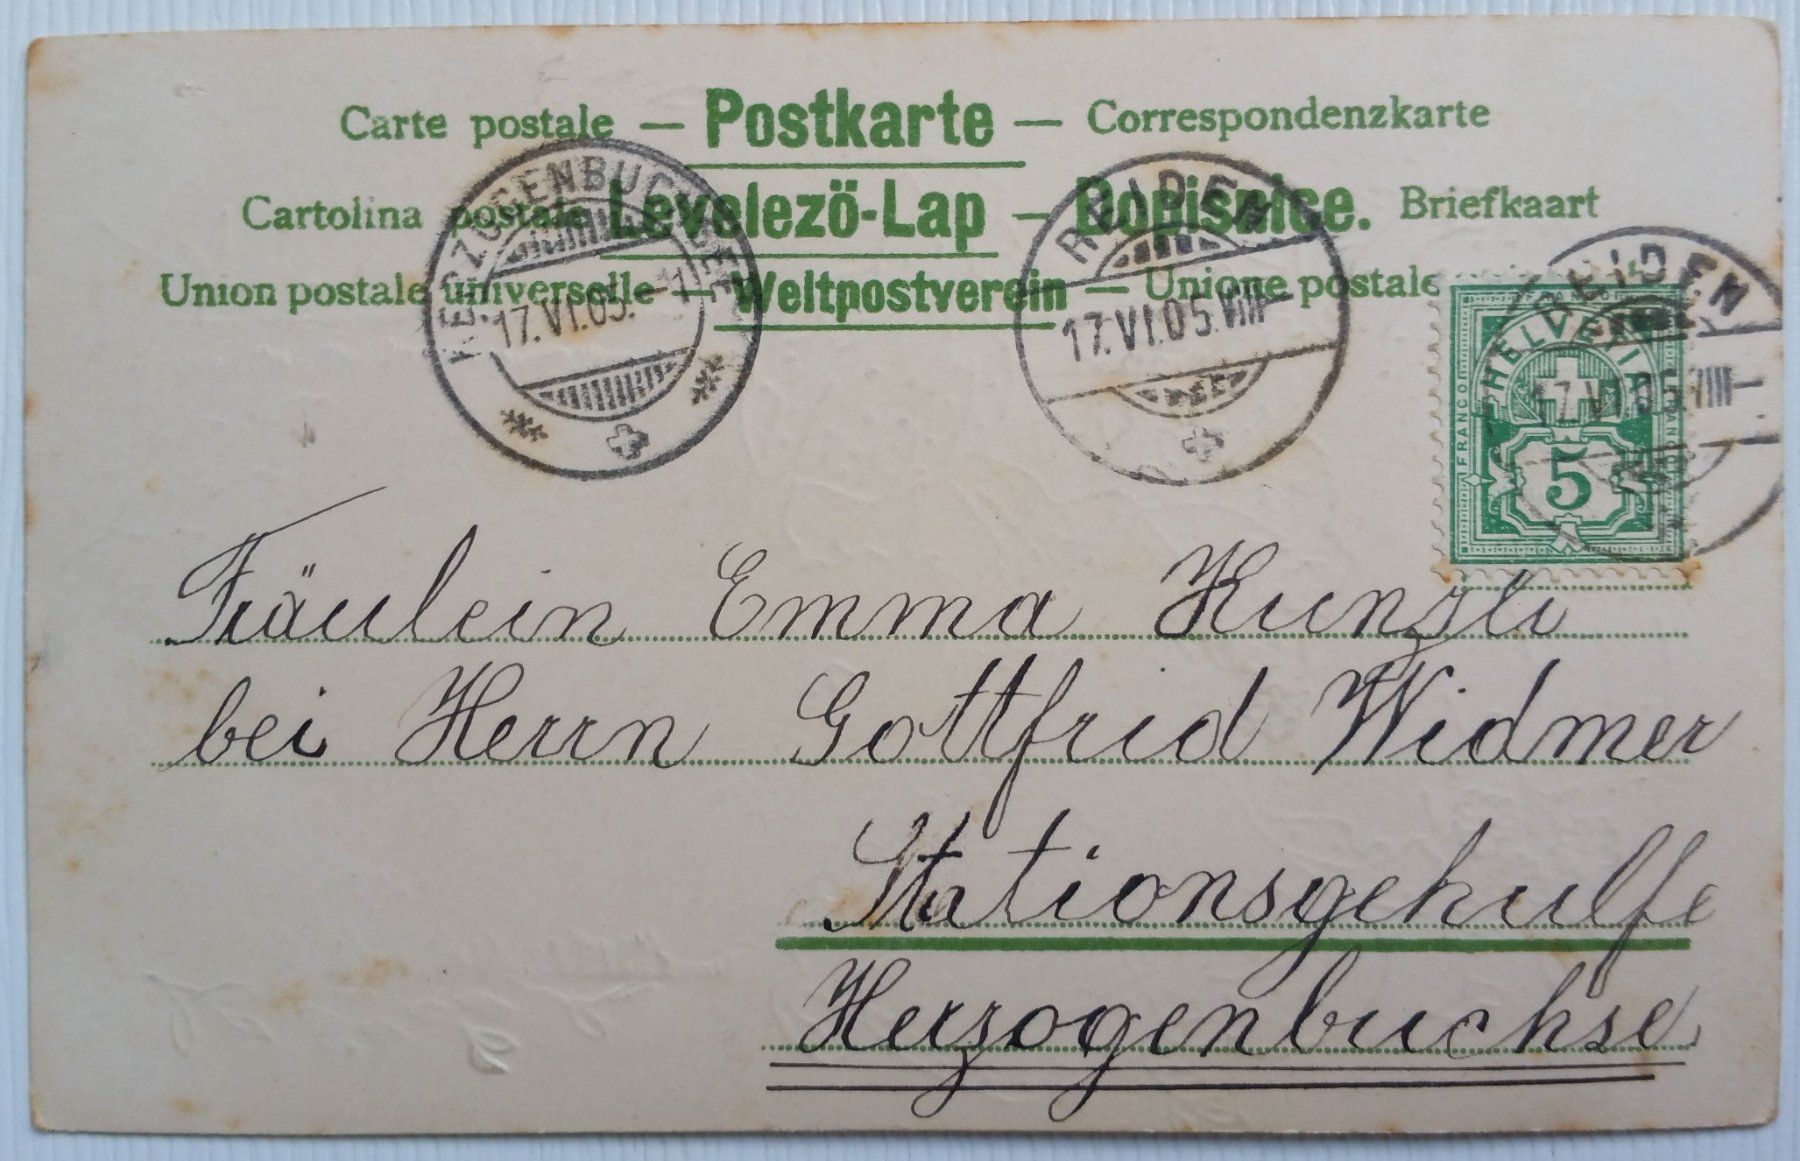 Carte postale — Postkarte — Correspondenzkarte
Cartolina postale Levelezö-Lap — Dopisnice. Briefkaart
Union postale universelle — Weltpostverein — Unione postale
HERZOGENBUCHSEE
17.VI.05.-11
REIDEN
17.VI.05.VIII-
REIDEN
17.VI.05.VIII-
HELVETIA
FRANCO
FRANCO
5
Fräulein Emma Kunzli
bei Herrn Gottfrid Widmer
Stationsgehulfe
Herzogenbuchse